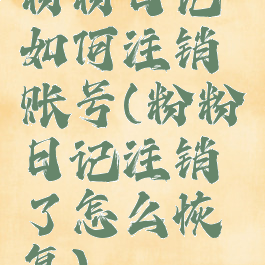 粉粉日记
如何注销
账号(粉粉
日记注销
了怎么恢
复)